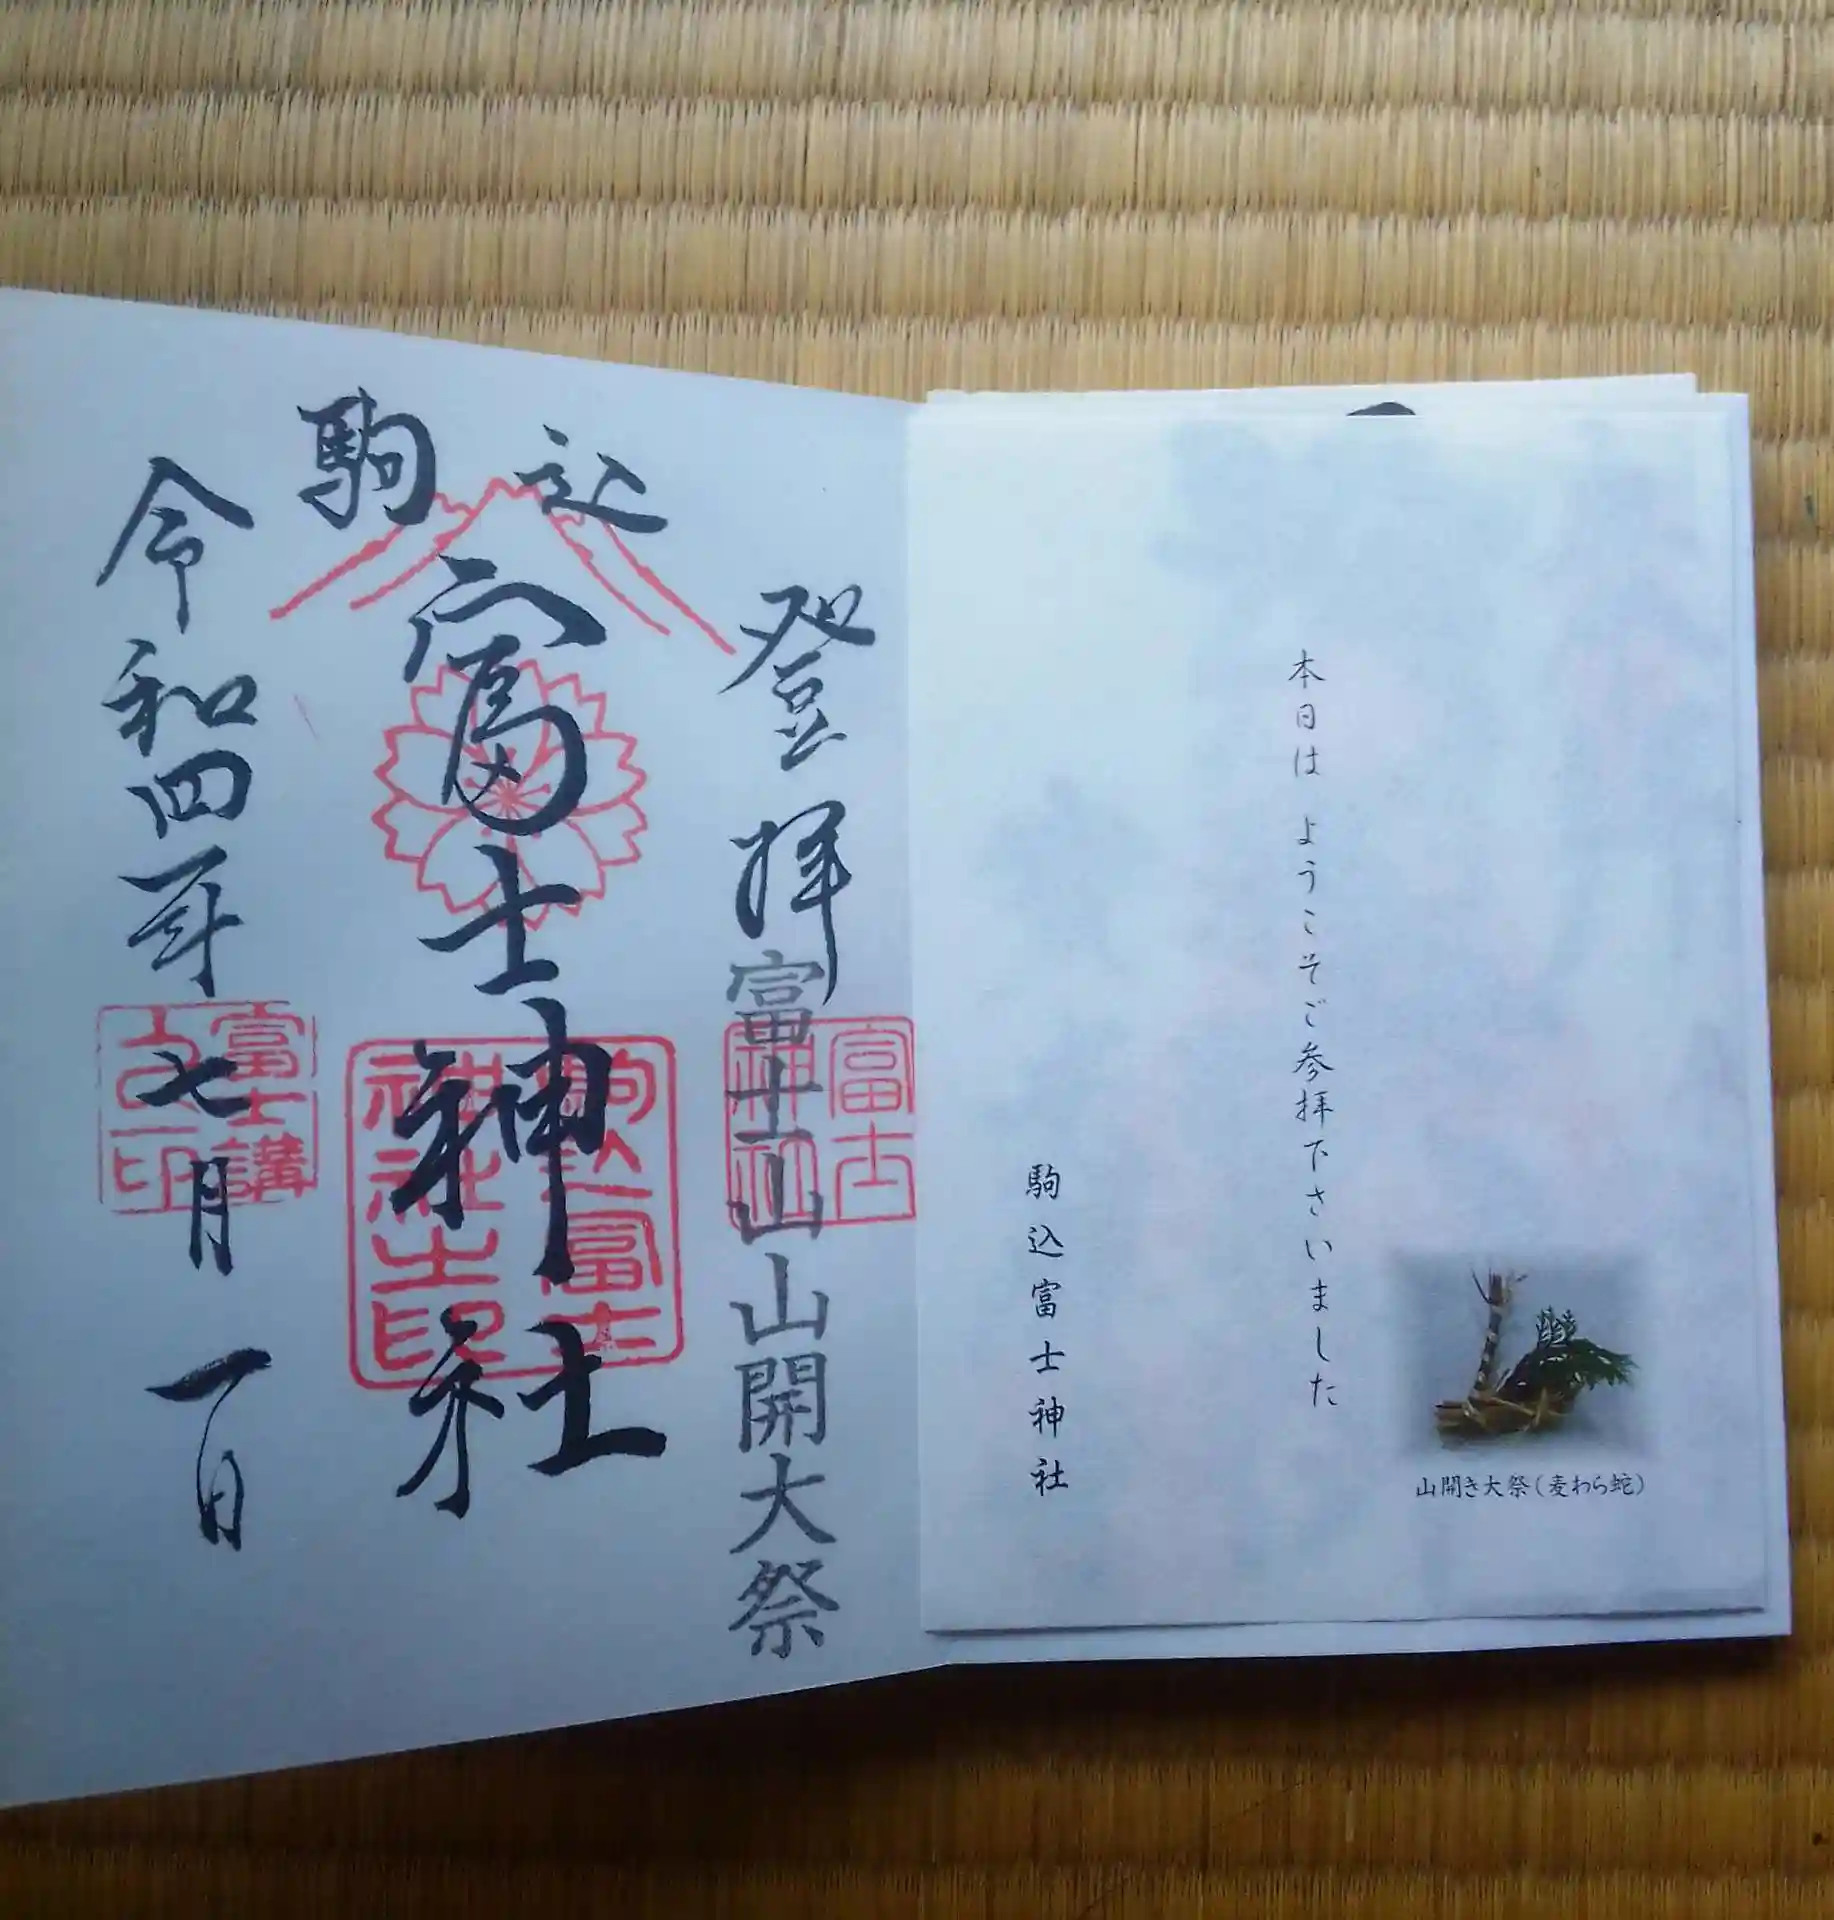 本日は ようこそご参拝下さいました
駒込富士神社
山開き大祭(麦わら蛇)
登拝
富士山山開大祭
富士
神社
駒込
富士神社
駒込富士
神社之印
令和四年七月一日
富士講
之印